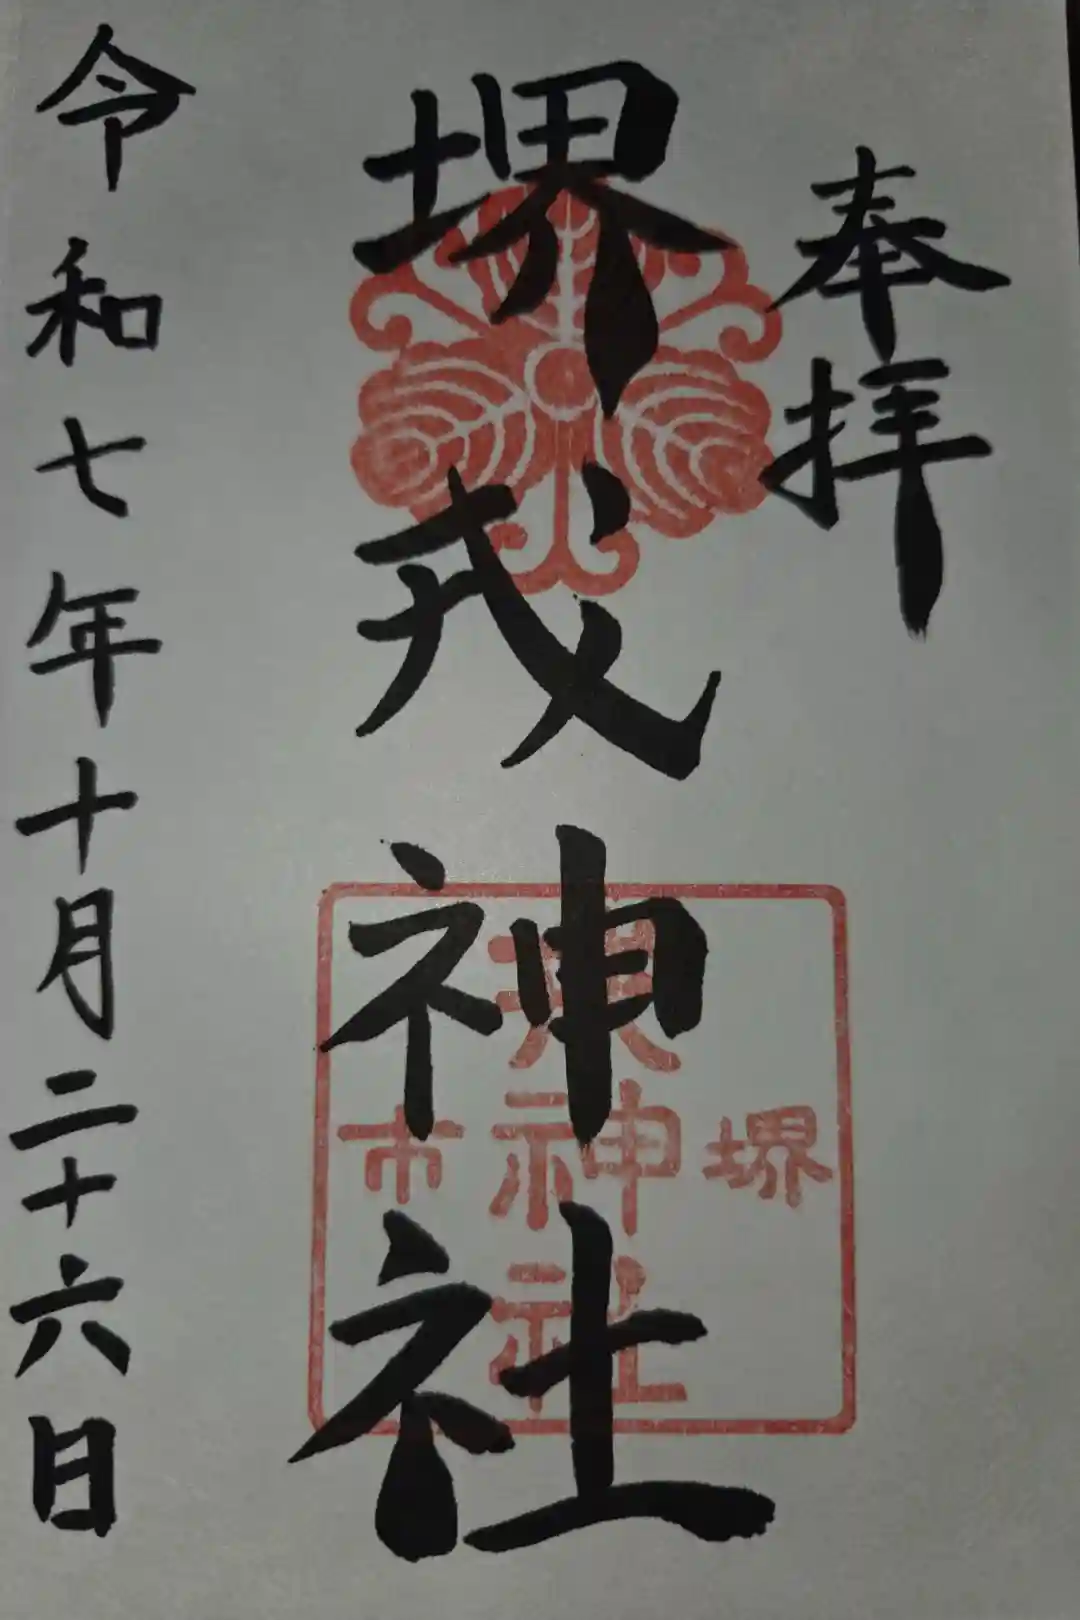 奉拝
堺戎神社
令和七年十月二十六日
堺
神社
市